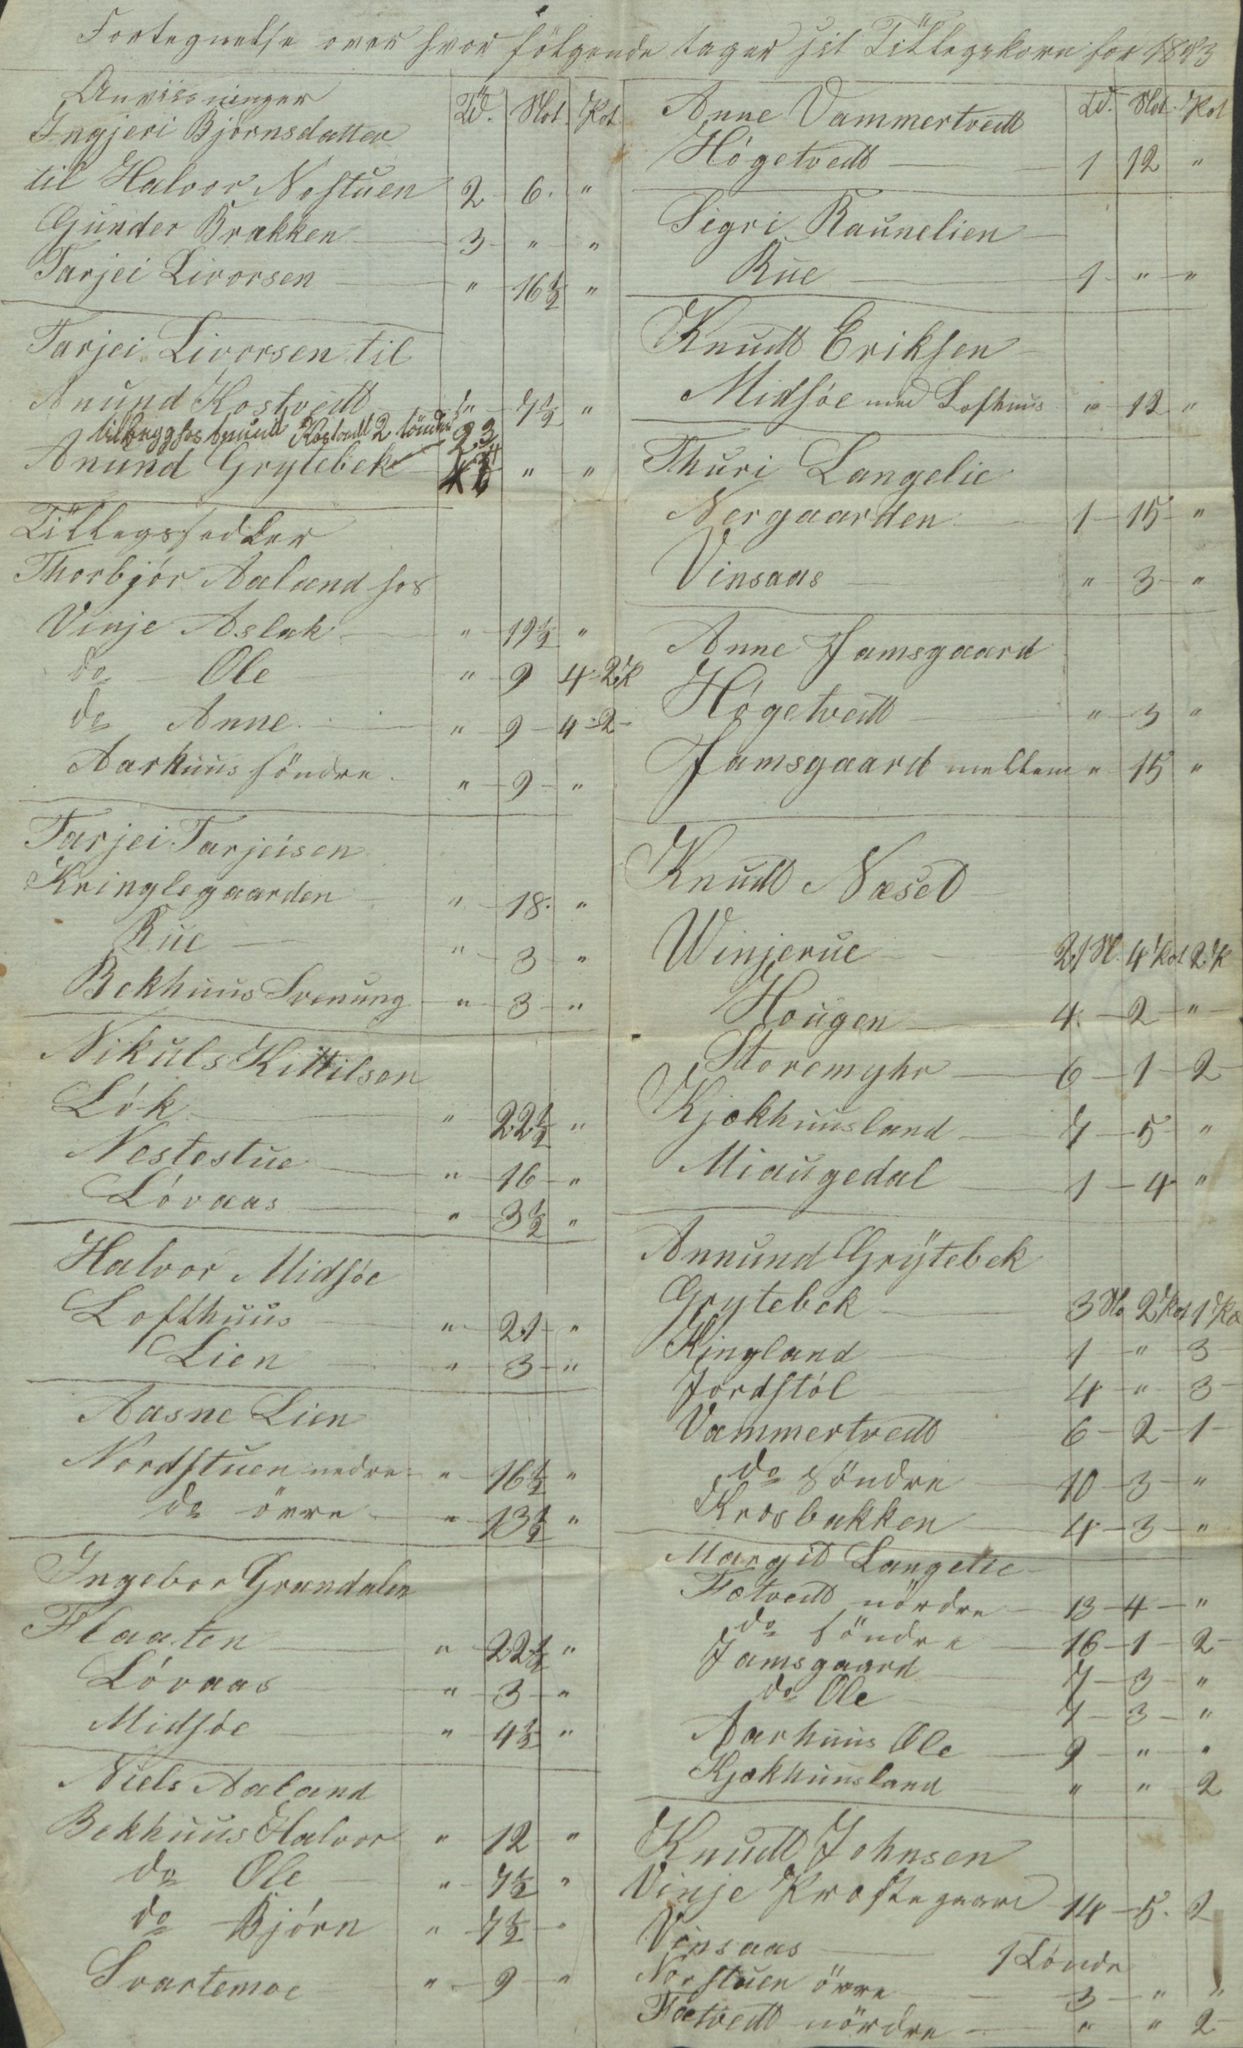 Fortegnelse over hvor fölgende tager sit Tillegskorn for 1843
Anvissninger Td. Skt. Kot
Ingjeri Bjørnsdatter
til Halvor Nostuen 2 6 "
Gunder Brakken 3 " "
Tarjei Livorsen " 16½ "
Tarjei Livorsen til
Anund Kostvedt " 7½ "
tilbyg hos Anund Kostvedt 2 tönder
Anund Grytebek " "
Tillegssedler
Thorbjör Aaland hos
Vinje Aslak " 19½ "
do Ole " 9 4 2 K
do Anne " 9 4 2
Aarhuus söndre " 9 "
Tarjei Tarjeisen
Kringlegaarden " 18 "
Rue " 3 "
Bekhuus Svenung " 3 "
Nikuls Kittilsen
Lók " 22½ "
Nestestue " 16 "
Lóvaas " 3½ "
Halvor Midsóe
Lofthuus " 21 "
Lien " 3 "
Aasne Lien
Nordstuen nedre " 16½ "
do övre " 13½ "
Ingebor Grandalen
Flaaten " 22½ "
Lóvaas " 3 "
Midsóe " 4½ "
Niels Aaland
Bekhuus Halvor " 12 "
do Ole " 7½ "
do Bjórn " 7½ "
Svartemoe " 9 "
Anne Vammertvedt Td. Skt. Kot
Högetvedt 1 12 "
Sigri Raunelien
Rue 1 " "
Knudt Eriksen
Midsóe med Lofthuus " 12 "
Thuri Langelie
Nergaarden 1 15 "
Vinsaas " 3 "
Anne Jamsgaard
Högetvedt " 3 "
Jamsgaard mellem " 15 "
Knudt Næset
Winjerue 21 Sk. 4 Kot 2 K
Hougen 4 2 "
Storemyhr 6 1 2
Kjækhuusland 7 5 "
Miaugedal 1 4 "
Annund Grÿtebek
Grytebek 3 Sk 2 Kot 1 Ka
Kingland 1 " 3
Jordstöl 4 " 3
Vammertvedt 6 2 1
do Söndre 10 3 "
Krosbakken 4 3 "
Margit Langelie
Fætvedt nördre 13 4 "
do söndre 16 1 2
Jamsgaard 7 3 "
do Ole 7 3 "
Aarhuus Ole 9 " "
Kjækhuusland " " 2
Knudt Johnsen
Vinje Prostegaard 14 5 2
Vinsaas 1 Tönde
Norstuen övre 3 " "
Fætvedt nördre " " 2